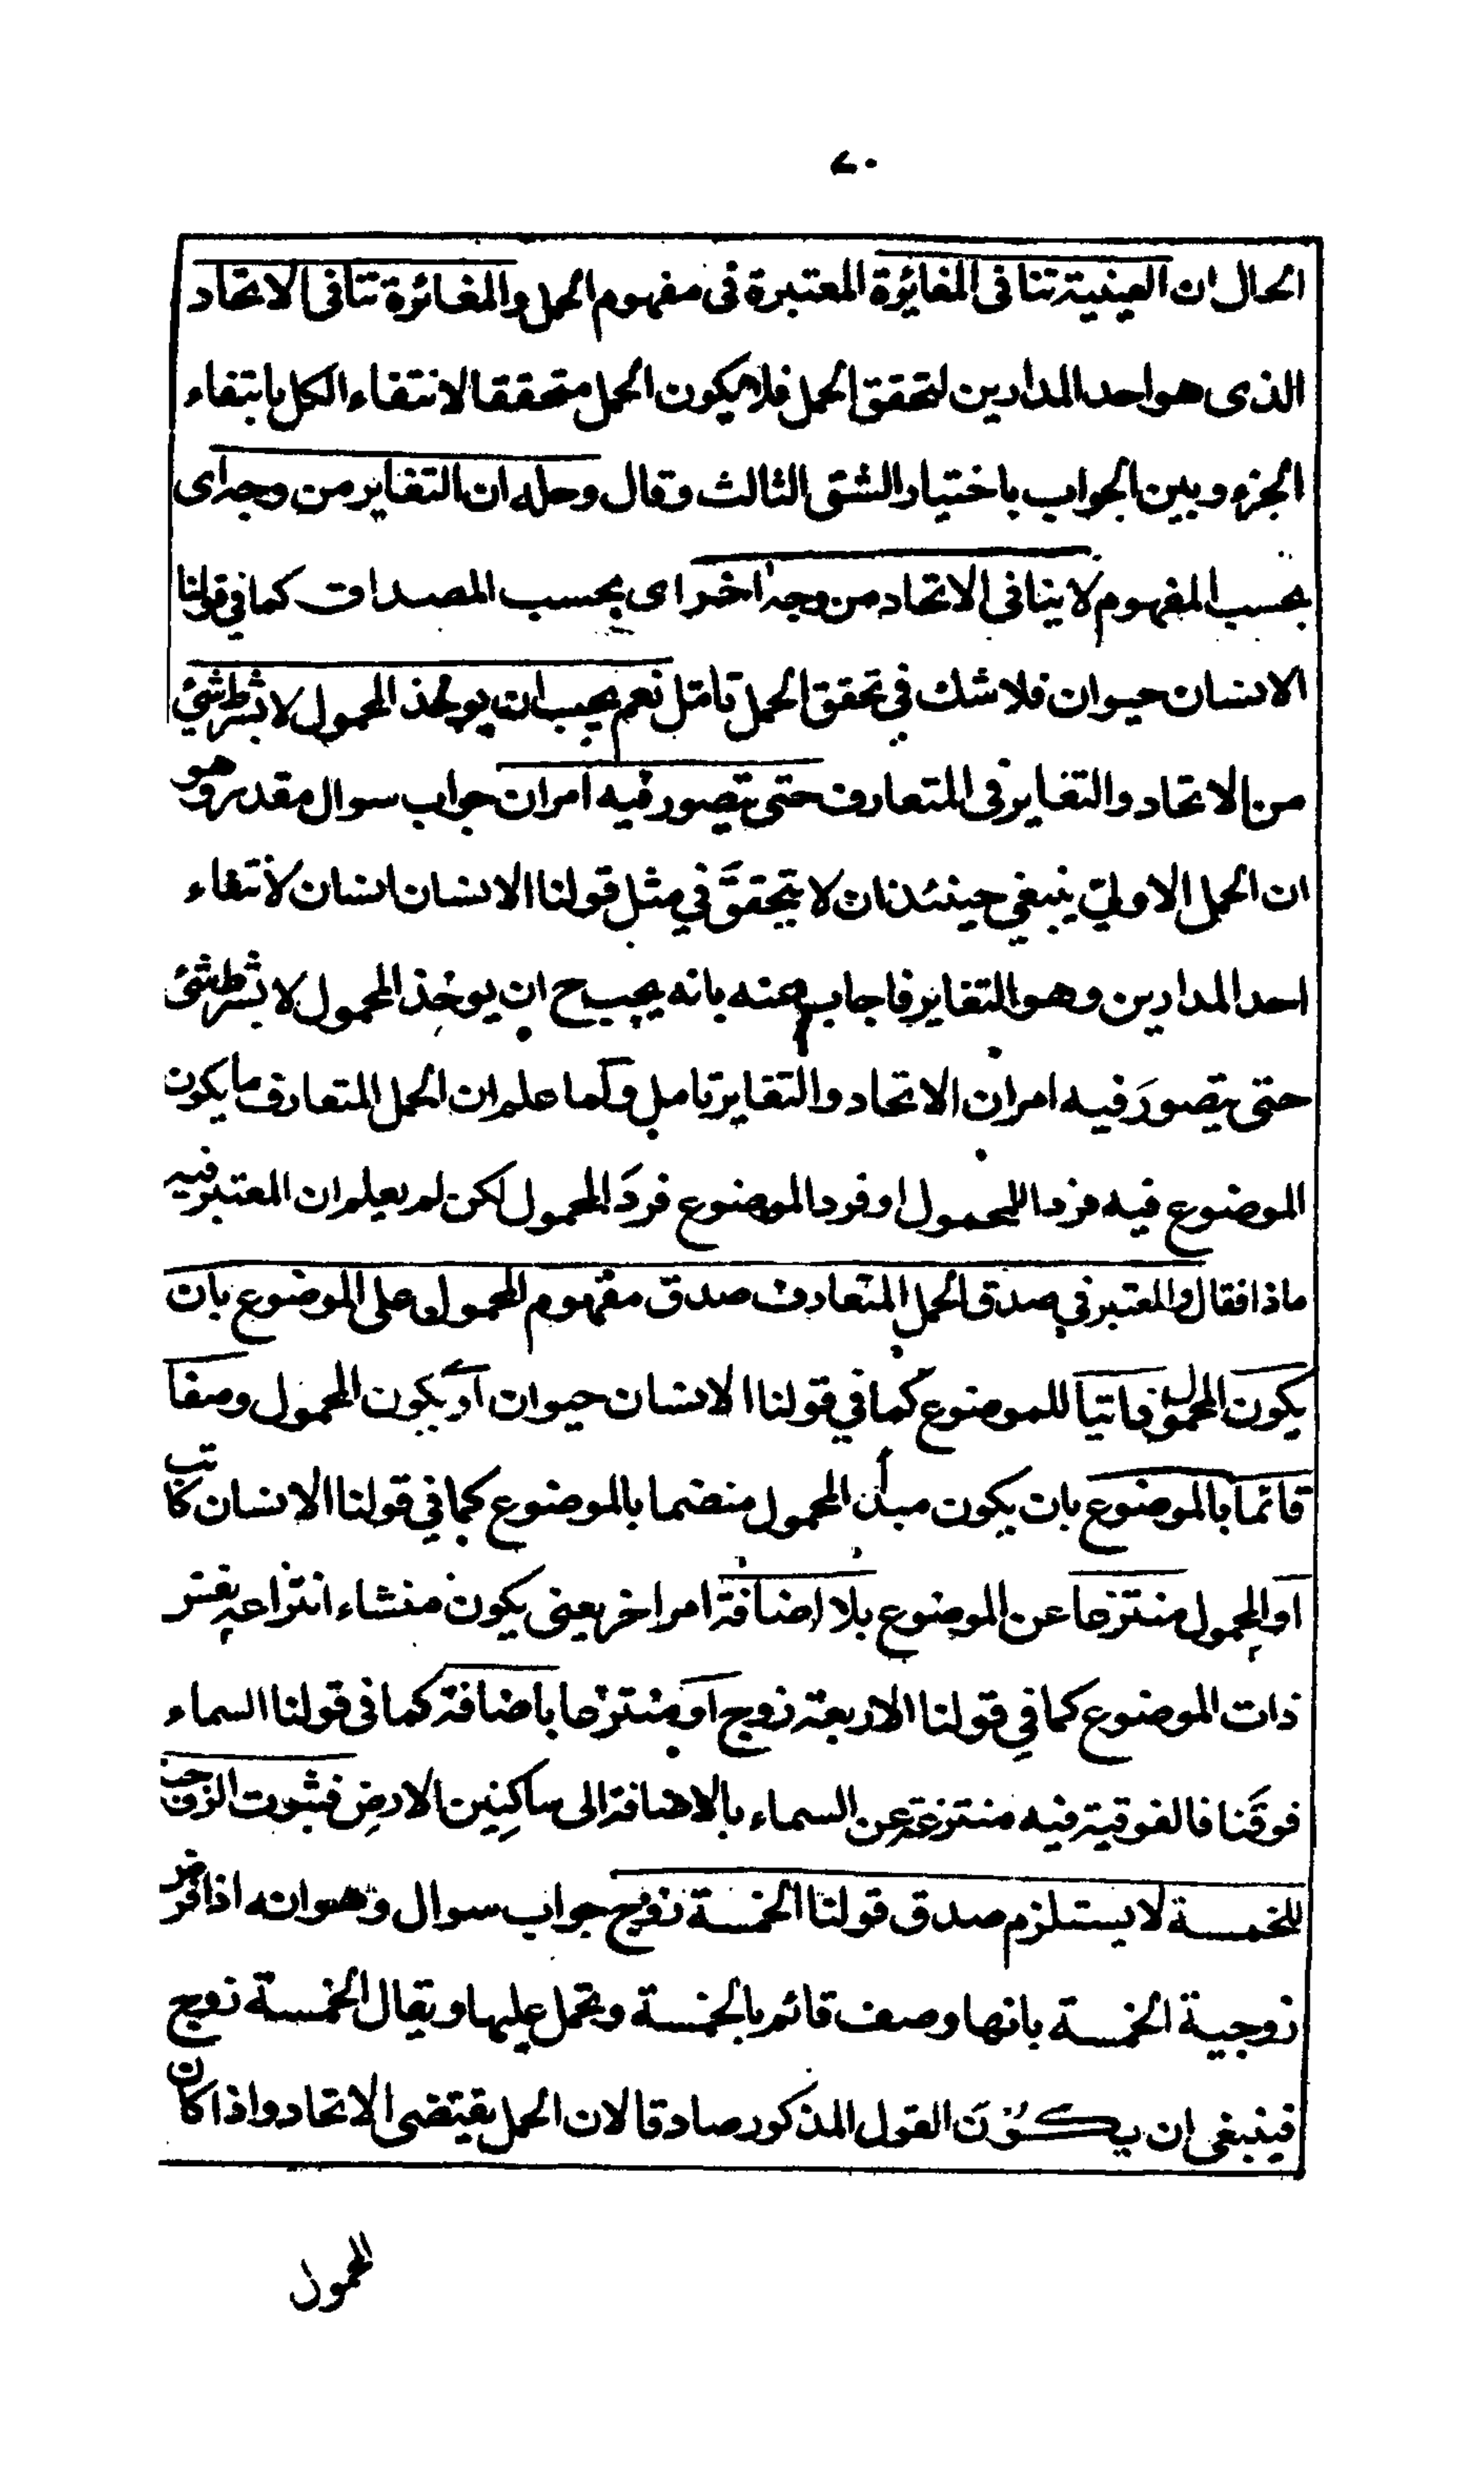 ٧٠
الحال ان العينية تنافى المغائرة المعتبرة فى مفهوم الحمل والمغائرة تنافى الاتحاد
الذى هو احد المدارين لتحقق الحمل فلا يكون الحمل متحققا لانتفاء الكل بانتفاء
الجزء وبين الجواب باختيار الشق الثالث وقال وحله ان التغاير من وجه اى
بحسب المفهوم لا ينافى الاتحاد من وجه اخر اى بحسب المصداق كما في قولنا
الانسان حيوان فلا شك في تحقق الحمل تامل نعم يجب ان يوخذ المحمول لا بشرط شئ
من الاتحاد والتغاير فى المتعارف حتى يتصور فيه امران جواب سوال مقدر وهو
ان الحمل الاولي ينبغي حينئذ ان لا يتحقق في مثل قولنا الانسان انسان لانتفاء
احد المدارين وهو التغاير فاجاب عنه بانه يجب ح ان يوخذ المحمول لا بشرط شئ
حتى يتصور فيه امران الاتحاد والتغاير تامل ولما علم ان الحمل المتعارف ما يكون
الموضوع فيه فردا للمحمول او فرد الموضوع فرد المحمول لكن لم يعلم ان المعتبر فيه
ماذا فقال والمعتبر في صدق الحمل المتعارف صدق مفهوم المحمول على الموضوع بان
يكون المحمول ذاتيا للموضوع كما في قولنا الانسان حيوان او يكون المحمول وصفا
قائما بالموضوع بان يكون مبدأ المحمول منضما بالموضوع كما في قولنا الانسان كاتب
او المحمول منتزعا عن الموضوع بلا اضافة امر اخر يعنى يكون منشاء انتزاعه نفس
ذات الموضوع كما في قولنا الاربعة زوج او منتزعا باضافة كما فى قولنا السماء
فوقنا فالفوقية فيه منتزعة عن السماء بالاضافة الى ساكنين الارض فثبوت الزوجية
للخمسة لا يستلزم صدق قولنا الخمسة زوج جواب سوال وهو انه اذا فرض
زوجية الخمسة بانها وصف قائم بالخمسة وتحمل عليها ويقال الخمسة زوج
فينبغى ان يكون القول المذكور صادقا لان الحمل يقتضى الاتحاد واذا كان
المحمول